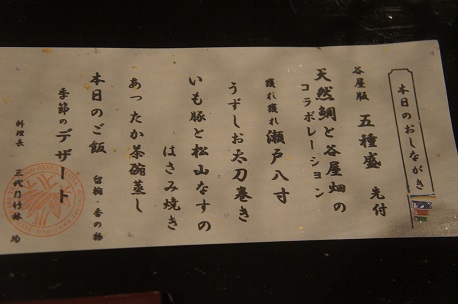 本日のおしながき
谷屋版 五種盛 先付
天然鯛と谷屋畑の
コラボレーション
獲れ獲れ瀬戸八寸
うずしお太刀巻き
いも豚と松山なすの
はさみ焼き
あったか茶碗蒸し
本日のご飯 留椀・香の物
季節のデザート
料理長 三代目竹林 均